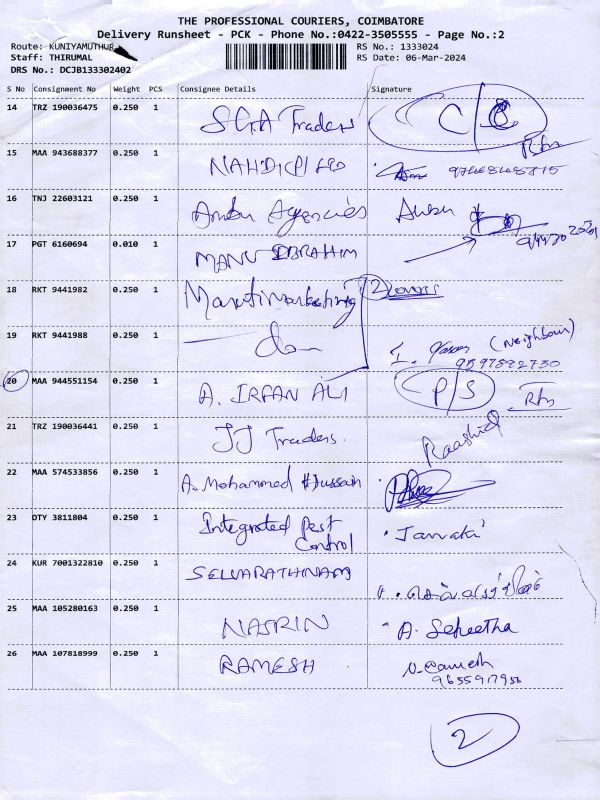 THE PROFESSIONAL COURIERS, COIMBATORE
Delivery Runsheet - PCK - Phone No.:0422-3505555 - Page No.:2
Route: KUNIYAMUTHUR
RS No.: 1333024
Staff: THIRUMAL
RS Date: 06-Mar-2024
DRS No.: DCJB133302402
S No Consignment No Weight PCS Consignee Details Signature
14 TRZ 190036475 0.250 1 SGA Traders C/S
Rtn
15 MAA 943688377 0.250 1
16 TNJ 22603121 0.250 1 Anbu Agencies Anbu
17 PGT 6160694 0.010 1 MANU IBRAHIM
18 RKT 9441982 0.250 1 Maruti Marketing 2
19 RKT 9441988 0.250 1 (Neighbour)
9597892730
20 MAA 944551154 0.250 1 A. IRFAN ALI P/S
Rtn
21 TRZ 190036441 0.250 1 JJ Traders. Raashid
22 MAA 574533856 0.250 1 A. Mohammed Hussain
23 DTY 3811804 0.250 1 Integrated Pest
Control Janaki
24 KUR 7001322810 0.250 1 SELVARATHINAM
25 MAA 105280163 0.250 1 NASRIN A.
26 MAA 107818999 0.250 1 RAMESH
2